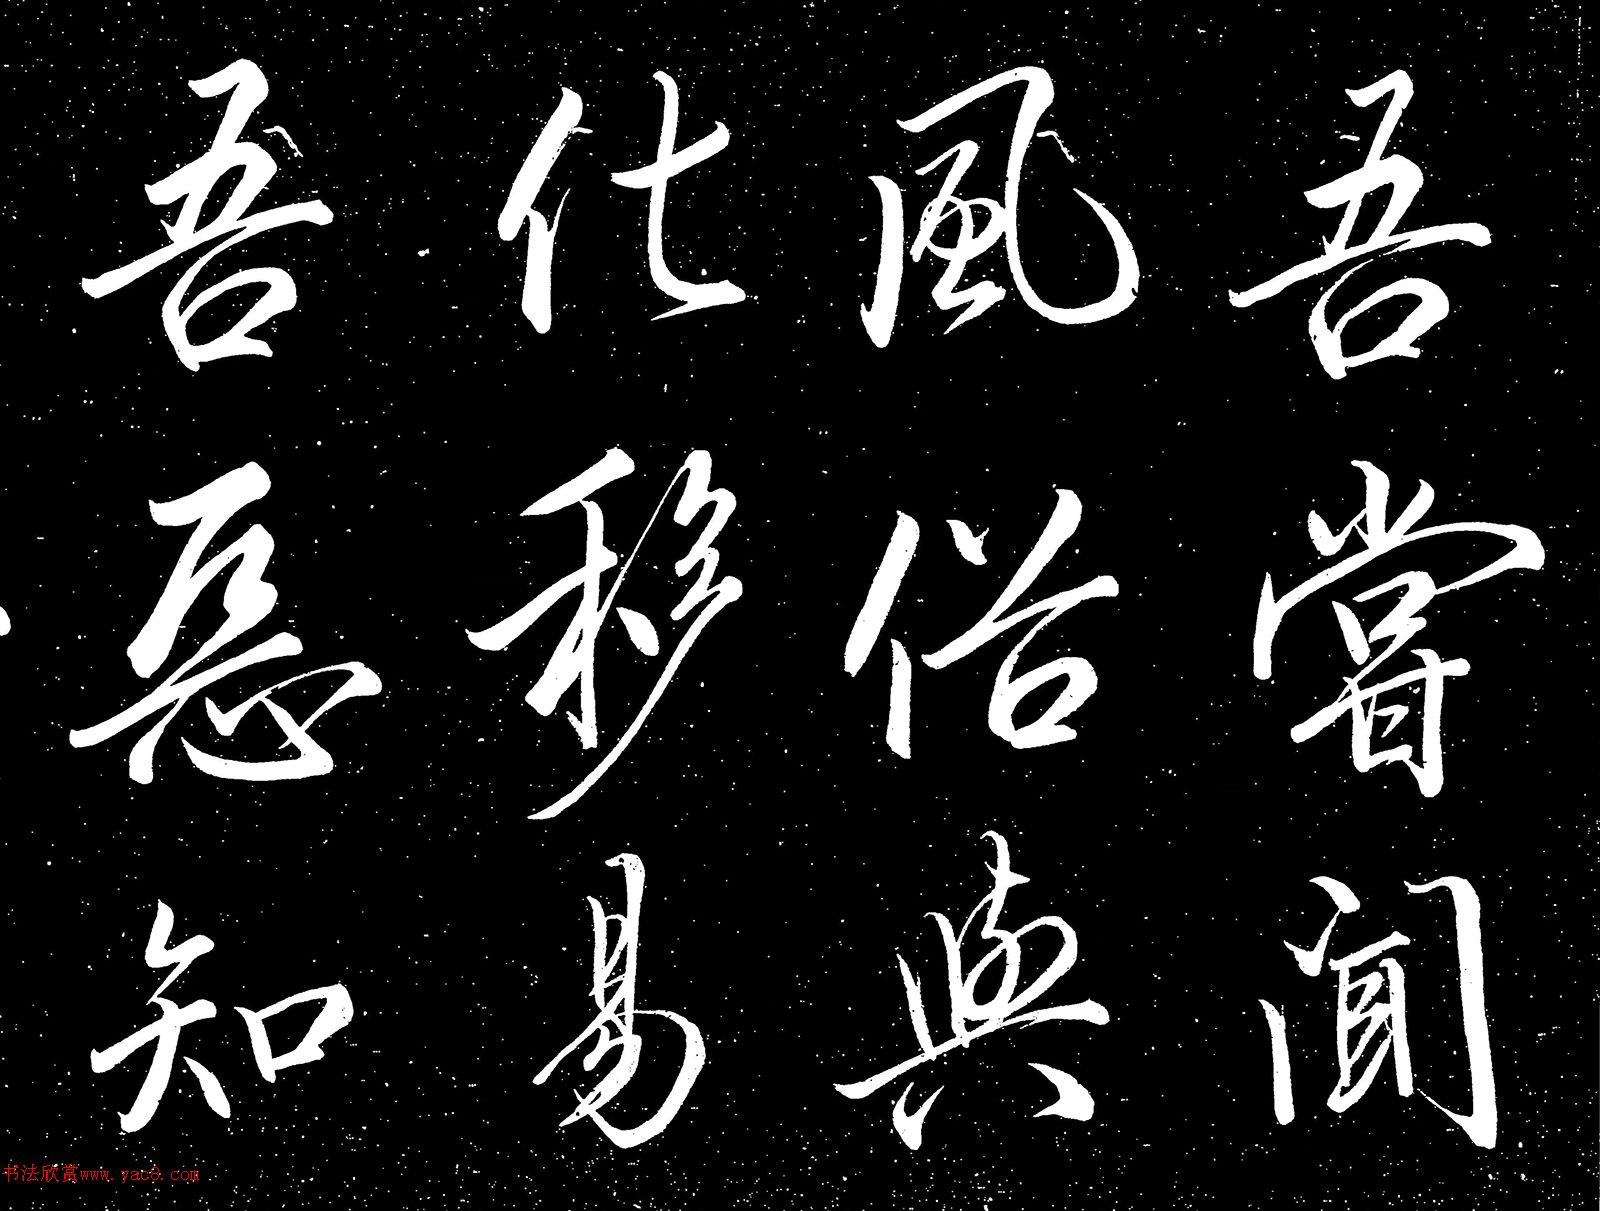 吾嘗聞
風俗與
化移易
吾惡知
书法欣赏www.yac8.com